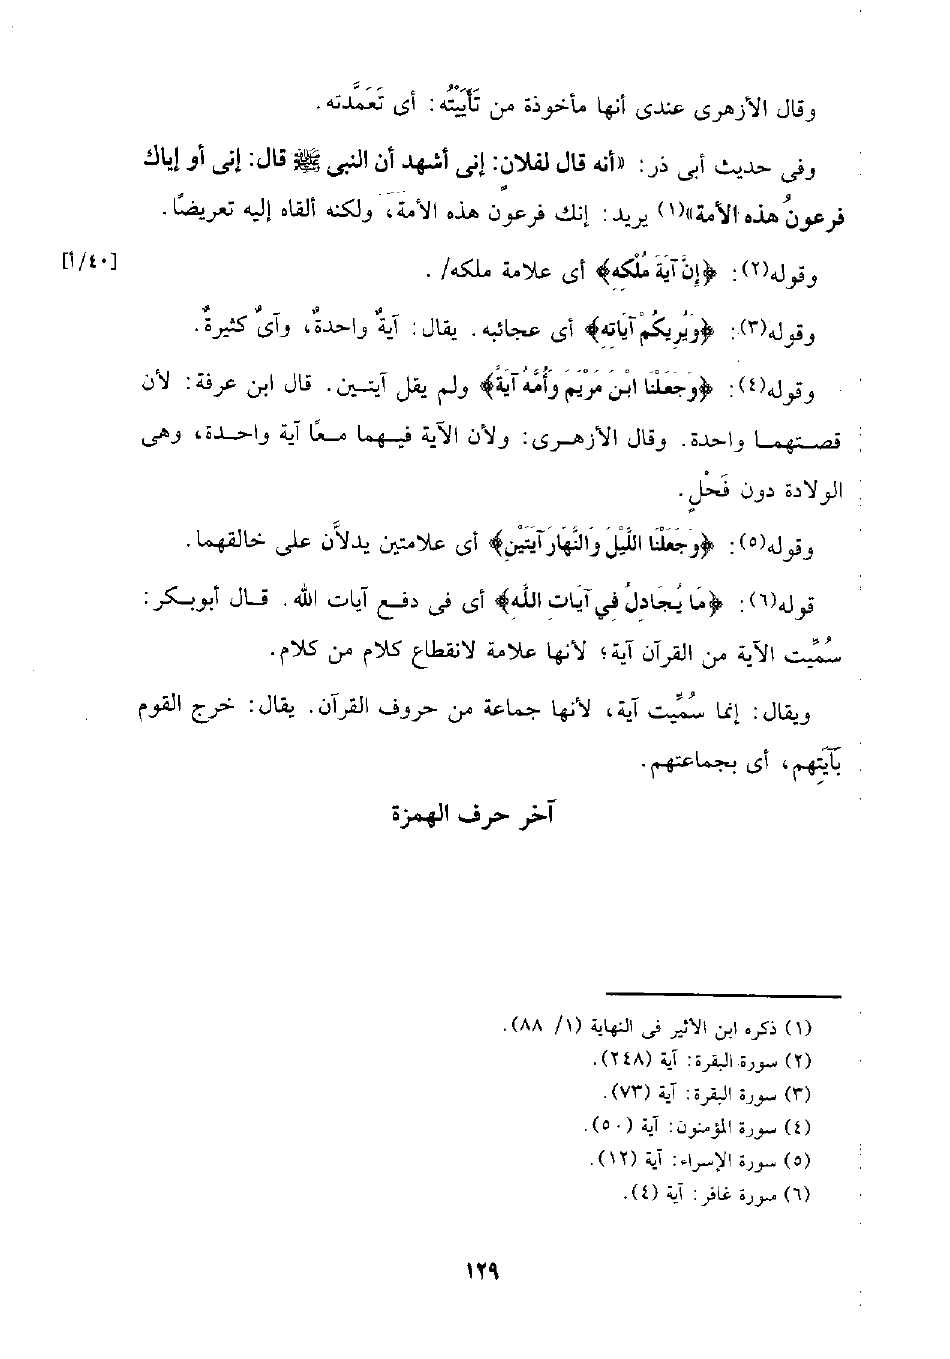 وقال الأزهرى عندى أنها مأخوذة من تَأَيَّيْتُه: أى تَعَمَّدته.
وفى حديث أبى ذر: «أنه قال لفلان: إنى أشهد أن النبى ﷺ قال: إنى أو إياك
فرعونُ هذه الأمة»(١) يريد: إنك فرعون هذه الأمة، ولكنه ألقاه إليه تعريضًا.
وقوله(٢): ﴿إِنَّ آيَةَ مُلْكِهِ﴾ أى علامة ملكه/ .
[٤٠/أ]
وقوله(٣): ﴿وَيُرِيكُمْ آيَاتِهِ﴾ أى عجائبه. يقال: آيةٌ واحدةٌ، وآىٌ كثيرةٌ.
وقوله(٤): ﴿وَجَعَلْنَا ابْنَ مَرْيَمَ وَأُمَّهُ آيَةً﴾ ولم يقل آيتين. قال ابن عرفة: لأن
قصتهما واحدة. وقال الأزهرى: ولأن الآية فيهما معًا آية واحدة، وهى
الولادة دون فَحْلٍ.
وقوله(٥): ﴿وَجَعَلْنَا اللَّيْلَ وَالنَّهَارَ آيَتَيْنِ﴾ أى علامتين يدلاَّن على خالقهما.
قوله(٦): ﴿مَا يُجَادِلُ فِي آيَاتِ اللَّهِ﴾ أى فى دفع آيات الله. قال أبوبكر:
سُمِّيت الآية من القرآن آية؛ لأنها علامة لانقطاع كلام من كلام.
ويقال: إنما سُمِّيت آية، لأنها جماعة من حروف القرآن. يقال: خرج القوم
بآيَتِهم، أى بجماعتهم.
آخر حرف الهمزة
(١) ذكره ابن الأثير فى النهاية (١/ ٨٨).
(٢) سورة البقرة: آية (٢٤٨).
(٣) سورة البقرة: آية (٧٣).
(٤) سورة المؤمنون: آية (٥٠).
(٥) سورة الإسراء: آية (١٢).
(٦) سورة غافر: آية (٤).
١٢٩